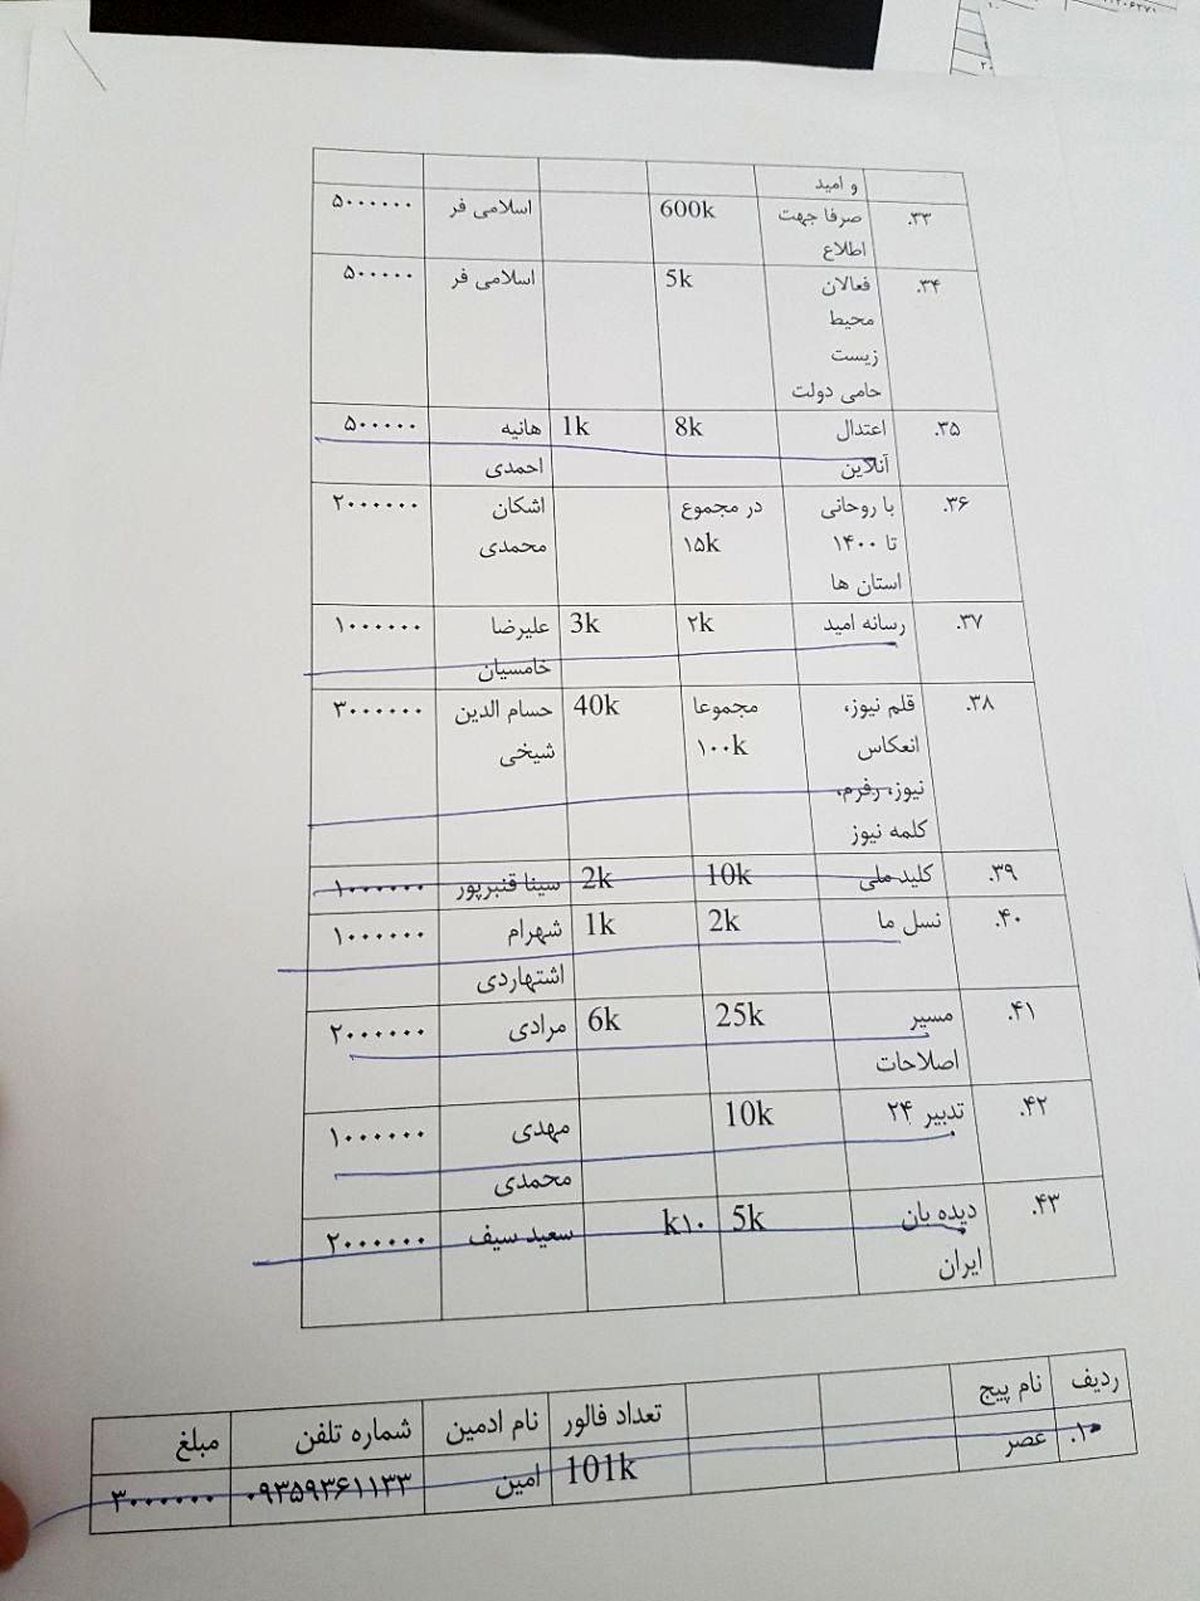 و امید
۳۳. صرفا جهت 600k اسلامی فر ۵۰۰۰۰۰۰
اطلاع
۳۴. فعالان 5k اسلامی فر ۵۰۰۰۰۰
محیط
زیست
حامی دولت
۳۵. اعتدال 8k 1k هانیه ۵۰۰۰۰۰
آنلاین احمدی
۳۶. با روحانی در مجموع اشکان ۲۰۰۰۰۰۰
تا ۱۴۰۰ ۱۵k محمدی
استان ها
۳۷. رسانه امید ۲k 3k علیرضا ۱۰۰۰۰۰۰
خامسیان
۳۸. قلم نیوز، مجموعا 40k حسام الدین ۳۰۰۰۰۰۰
انعکاس ۱۰۰k شیخی
نیوز، رفرم،
کلمه نیوز
۳۹. کلید ملی 10k 2k سینا قنبرپور ۱۰۰۰۰۰۰
۴۰. نسل ما 2k 1k شهرام ۱۰۰۰۰۰۰
اشتهاردی
۴۱. مسیر 25k 6k مرادی ۲۰۰۰۰۰۰
اصلاحات
۴۲. تدبیر ۲۴ 10k مهدی ۱۰۰۰۰۰۰
محمدی
۴۳. دیده بان 5k k۱۰ سعید سیف ۲۰۰۰۰۰۰
ایران
ردیف نام پیج تعداد فالور نام ادمین شماره تلفن مبلغ
۱. عصر 101k امین ۰۹۳۵۹۳۶۱۱۳۳ ۳۰۰۰۰۰۰